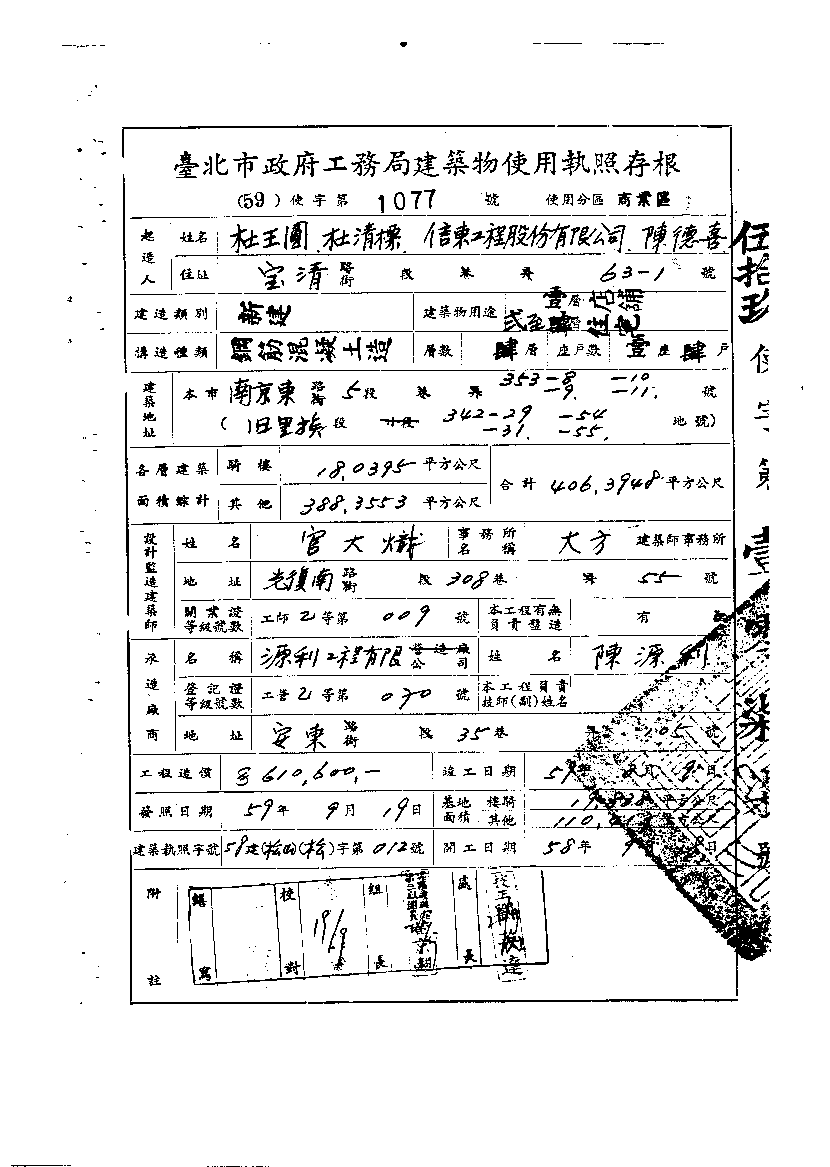 臺北市政府工務局建築物使用執照存根
(59)使字第 1077 號 使用分區 商業區
起造人 姓名 杜王園 杜清標 信東工程股份有限公司 陳德喜
住址 宝清 路街 段 巷 弄 63-1 號
建造類別 新建 建築物用途 壹層店舖 弍至肆層住宅
構造種類 鋼筋混凝土造 層數 肆層 座戶數 壹座肆戶
建築地址 本市 南京東 路街 5段 巷 弄 353-8 -9 -10 -11 號
(旧里族段 小段 342-29 -31 -54 -55 地號)
各層建築面積綜計 騎樓 18.0395 平方公尺 合計 406.3948 平方公尺
其他 388.3553 平方公尺
設計監造建築師 姓名 官大 事務所名稱 大方 建築師事務所
地址 光復南 路街 段 308巷 弄 55 號
開業證等級號數 工師乙等第 009 號 本工程有無負責監造 有
承造廠商 名稱 源利工程有限 營造廠公司 姓名 陳源利
登記證等級號數 工營乙等第 070 號 本工程負責技師(副)姓名
地址 安東 路街 段 35巷 105 號
工程造價 610,600,- 竣工日期 59年 月 日
發照日期 59年 9月 19日 基地面積 騎樓 平方公尺
其他 110. 平方公尺
建築執照字號 59建(松山)(松)字第 012 號 開工日期 58年 9 8日
附註
繕寫 校對 組長 處長
伍拾玖使字第壹 柒 號